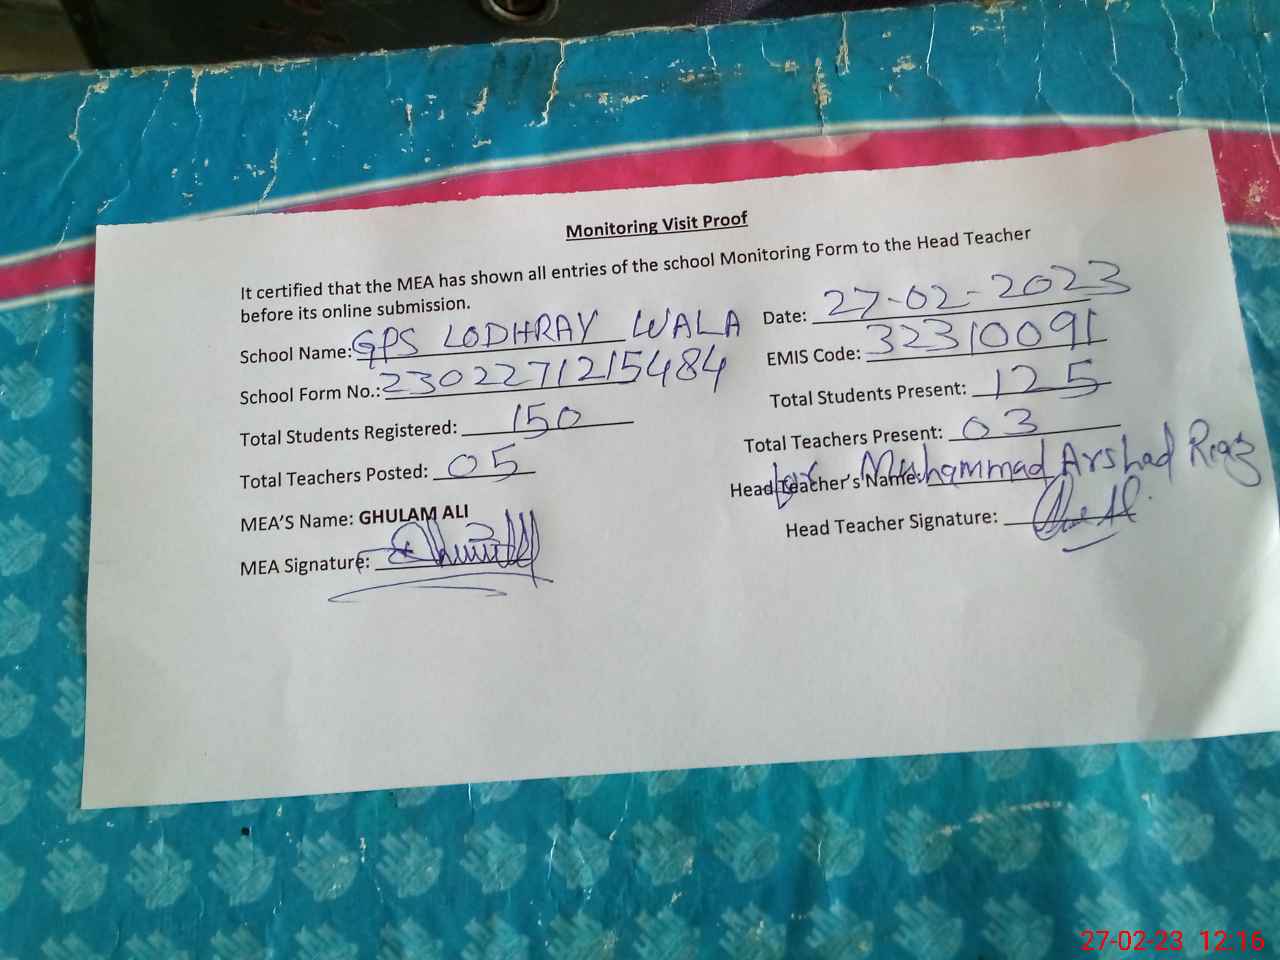 Monitoring Visit Proof
It certified that the MEA has shown all entries of the school Monitoring Form to the Head Teacher
before its online submission.
School Name: GPS LODHRAY WALA
Date: 27-02-2023
School Form No.: 2302271215484
EMIS Code: 32310091
Total Students Registered: 150
Total Students Present: 125
Total Teachers Posted: 05
Total Teachers Present: 03
Head Teacher's Name: for Muhammad Arshad Riaz
MEA'S Name: GHULAM ALI
Head Teacher Signature:
MEA Signature:
27-02-23 12:16